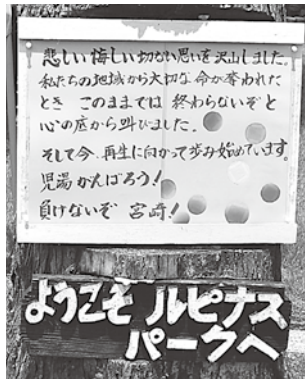 悲しい悔しい切ない思いを沢山しました。
私たちの地域から大切な命が奪われた
とき このままでは 終わらないぞと
心の底から叫びました。
そして今、再生に向かって歩み始めています。
児湯がんばろう!
負けないぞ 宮崎!
ようこそ ルピナス
パークへ